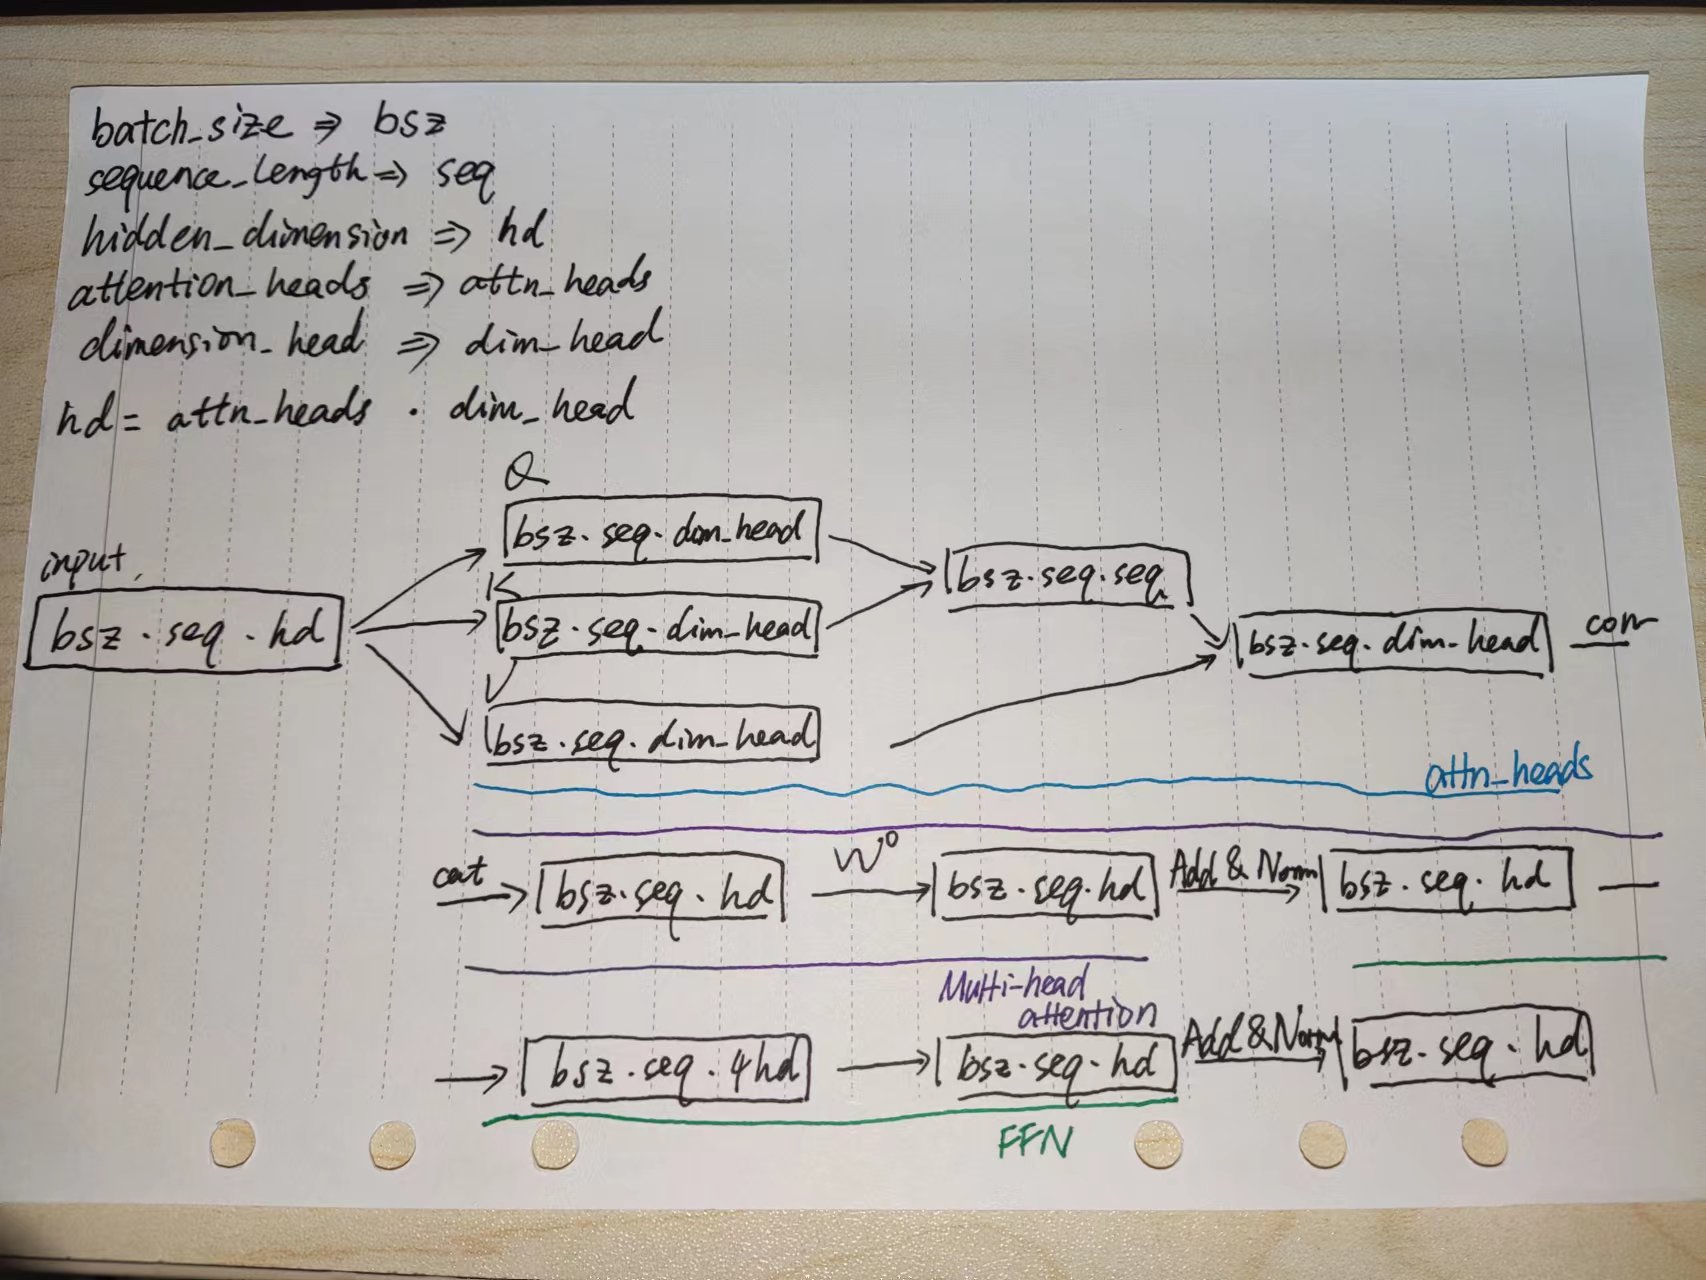 batch_size ⇒ bsz
sequence_length ⇒ seq
hidden_dimension ⇒ hd
attention_heads ⇒ attn_heads
dimension_head ⇒ dim_head
hd = attn_heads · dim_head
input
bsz · seq · hd
Q
bsz · seq · dim_head
K
bsz · seq · dim_head
V
bsz · seq · dim_head
bsz · seq · seq
bsz · seq · dim_head
con
attn_heads
cat
bsz · seq · hd
W⁰
bsz · seq · hd
Add & Norm
bsz · seq · hd
Multi-head
attention
bsz · seq · 4hd
bsz · seq · hd
Add & Norm
bsz · seq · hd
FFN